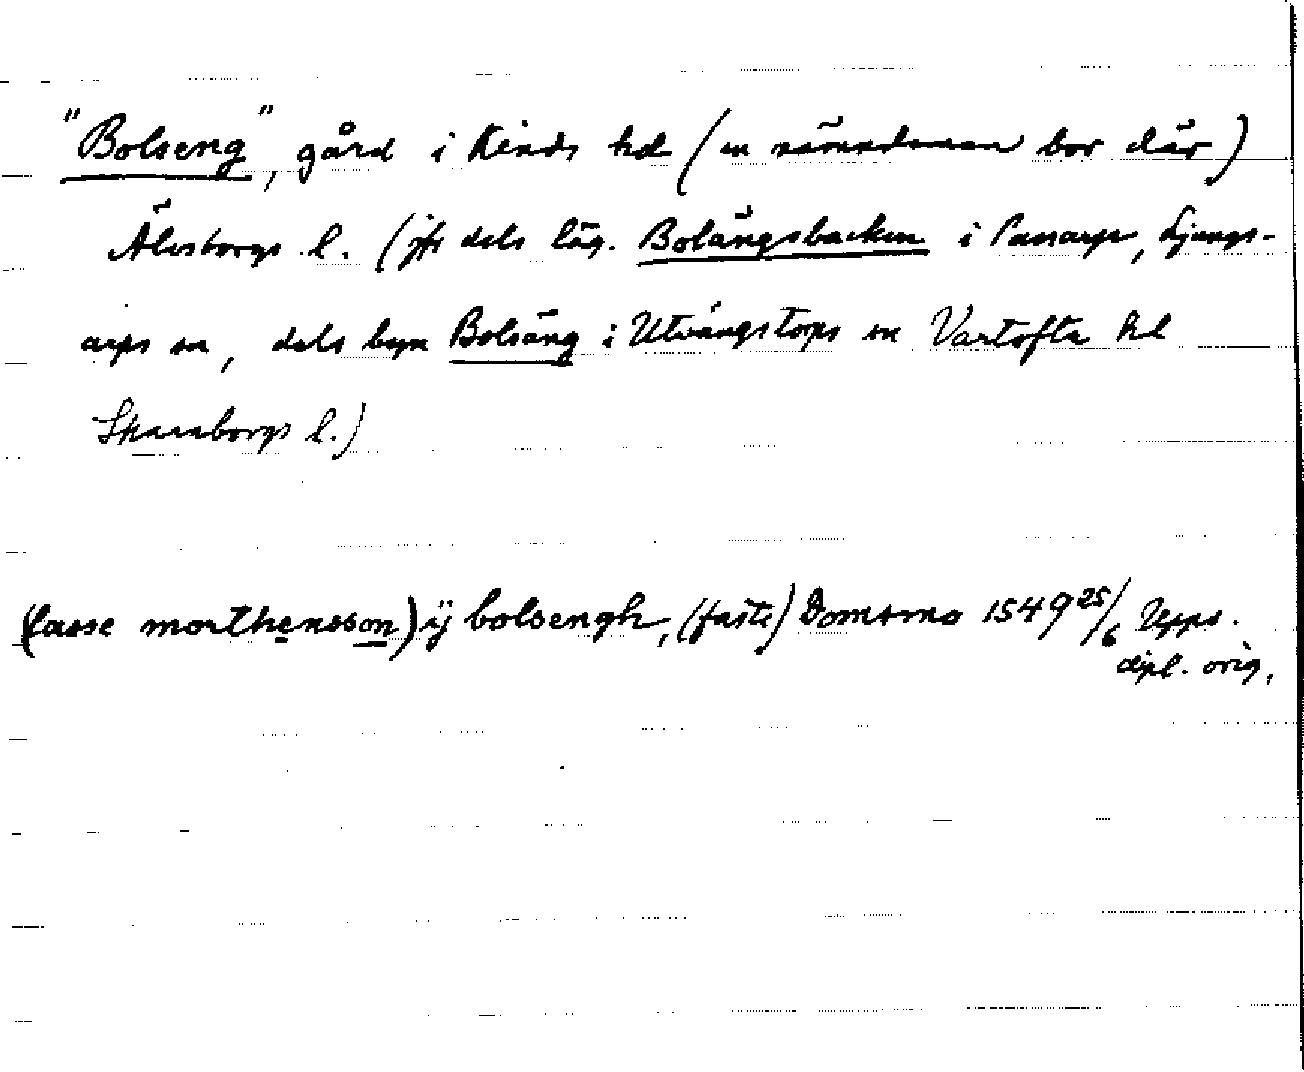 "Bolseng", gård i Kinds hd (en nämndeman bor där)
Älvsborgs l. (jfr dels läg. Bolängsbacken i Panarp, Ljungs-
arps sn, dels byn Bolsäng i Utvängstorps sn Vartofta hd
Skaraborgs l.)
(lasse morthensson) ÿ bolsengh, (faste) Domsmo 1549 25/6 Upps.
dipl. orig,